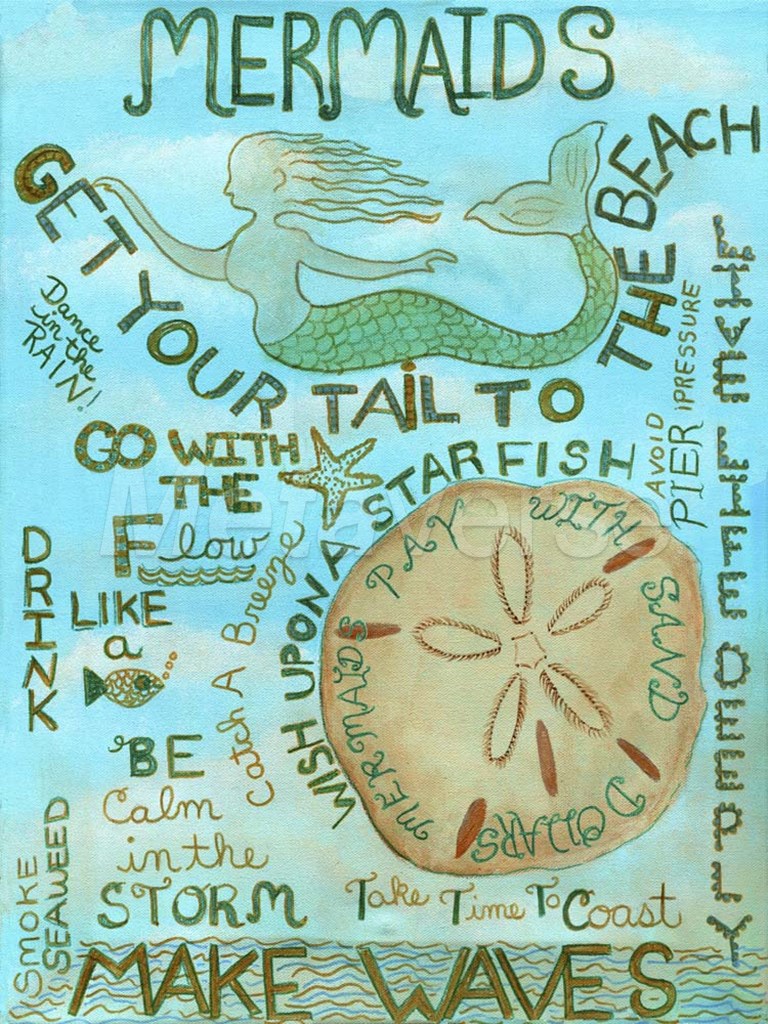 MERMAIDS
GET YOUR TAIL TO THE BEACH
Dance
in the
RAIN!
AVOID
PIER PRESSURE
GO WITH
THE
Flow
WISH UPON A STARFISH
MERMAIDS PAY WITH SAND DOllARS
DRINK
LIKE
a
Catch A Breeze
BE
Calm
in the
STORM
SMOKE
SEAWEED
Take Time To Coast
MAKE WAVES
MetaVerse